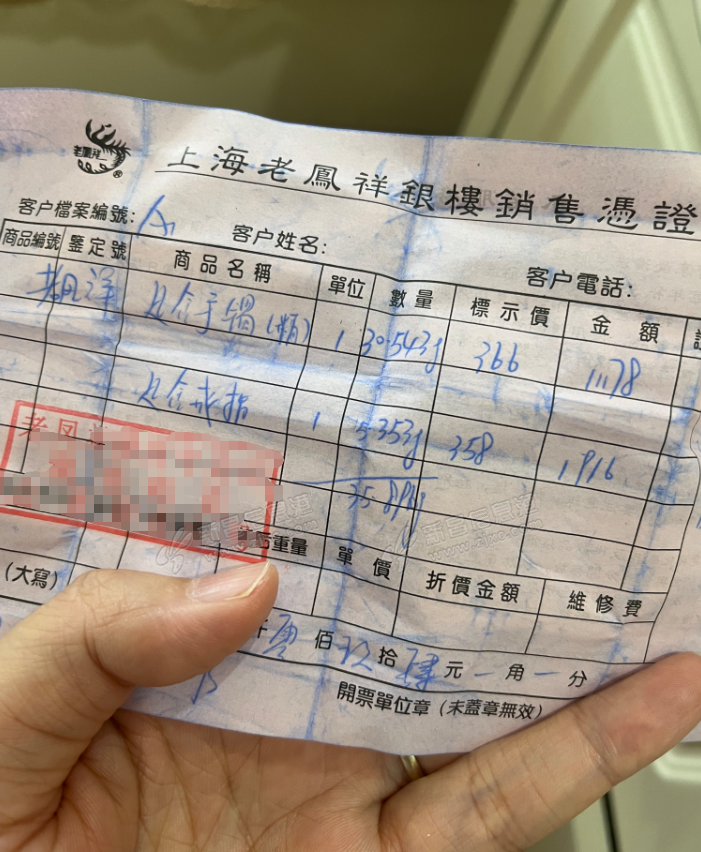 老鳳祥
上海老鳳祥銀樓銷售憑證
客户檔案編號: 客户姓名: 客户電話:
商品編號 鑒定號 商品名稱 單位 數量 標示價 金額
老凤祥 足金手镯(瓶) 1 30.543g 366 11178
足金戒指 1 5.353g 358 1916
35.896g
老凤
重量 單價 折價金額 維修費
(大寫)
仟 零 佰 玖 拾 肆 元 一 角 一 分
開票單位章 (未蓋章無效)